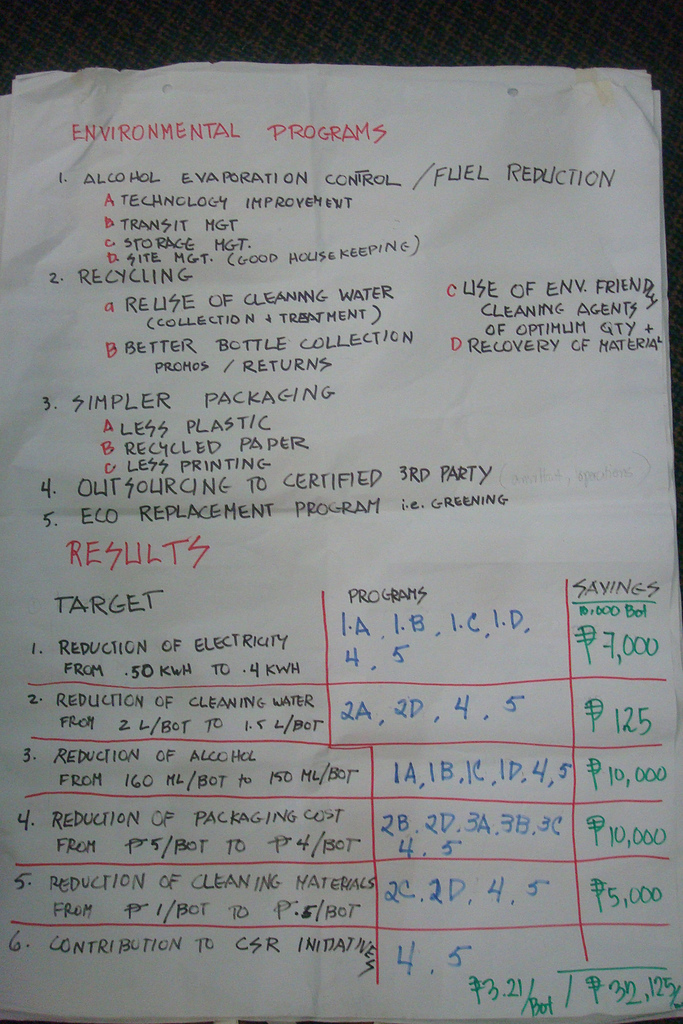 ENVIRONMENTAL PROGRAMS
1. ALCOHOL EVAPORATION CONTROL / FUEL REDUCTION
A TECHNOLOGY IMPROVEMENT
B TRANSIT MGT
C. STORAGE MGT.
D. SITE MGT. (GOOD HOUSEKEEPING)
2. RECYCLING
a REUSE OF CLEANING WATER
(COLLECTION + TREATMENT)
B BETTER BOTTLE COLLECTION
PROMOS / RETURNS
C USE OF ENV. FRIENDLY
CLEANING AGENTS
OF OPTIMUM QTY +
D RECOVERY OF MATERIAL
3. SIMPLER PACKAGING
A LESS PLASTIC
B RECYCLED PAPER
C LESS PRINTING
4. OUTSOURCING TO CERTIFIED 3RD PARTY
5. ECO REPLACEMENT PROGRAM i.e. GREENING
RESULTS
TARGET PROGRAMS SAVINGS
10,000 Bot
1. REDUCTION OF ELECTRICITY
FROM .50 KWH TO .4 KWH
1.A, 1.B, 1.C, 1.D,
4, 5
₱7,000
2. REDUCTION OF CLEANING WATER
FROM 2 L/BOT TO 1.5 L/BOT
2A, 2D, 4, 5
₱125
3. REDUCTION OF ALCOHOL
FROM 160 ML/BOT to 150 ML/BOT
1A, 1B, 1C, 1D, 4, 5
₱10,000
4. REDUCTION OF PACKAGING COST
FROM ₱5/BOT TO ₱4/BOT
2B, 2D, 3A, 3B, 3C
4, 5
₱10,000
5. REDUCTION OF CLEANING MATERIALS
FROM ₱1/BOT TO ₱.5/BOT
2C, 2D, 4, 5
₱5,000
6. CONTRIBUTION TO CSR INITIATIVES
4, 5
₱3.21/Bot / ₱32,125/